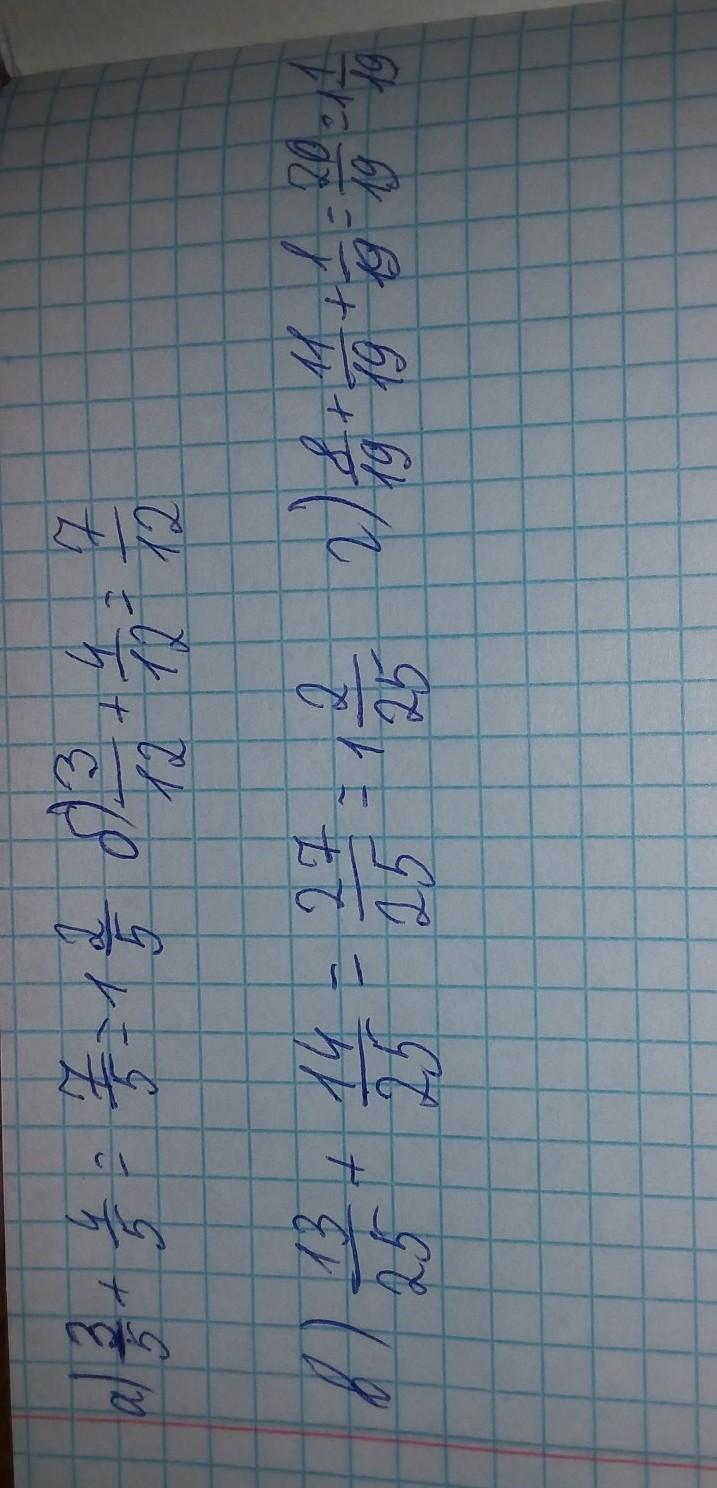 а) 3/5 + 4/5 = 7/5 = 1 2/5 б) 3/12 + 4/12 = 7/12
в) 13/25 + 14/25 = 27/25 = 1 2/25 г) 8/19 + 11/19 + 1/19 = 20/19 = 1 1/19